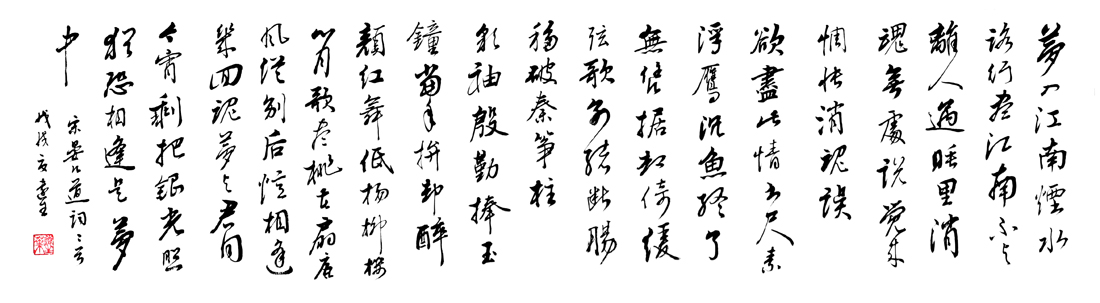 夢入江南煙水
路行盡江南不與
離人遇睡里消
魂無處說覺來
惆悵消魂誤
欲盡此情書尺素
浮鴈沉魚終了
無信據却倚緩
弦歌別緒斷腸
移破秦箏柱
彩袖殷勤捧玉
鐘當年拚却醉
顏紅舞低楊柳樓
心月歌盡桃花扇底
風從別后憶相逢
幾回魂夢與君同
今宵剩把銀釭照
猶恐相逢是夢
中
宋晏几道詞二首
戊戌夏